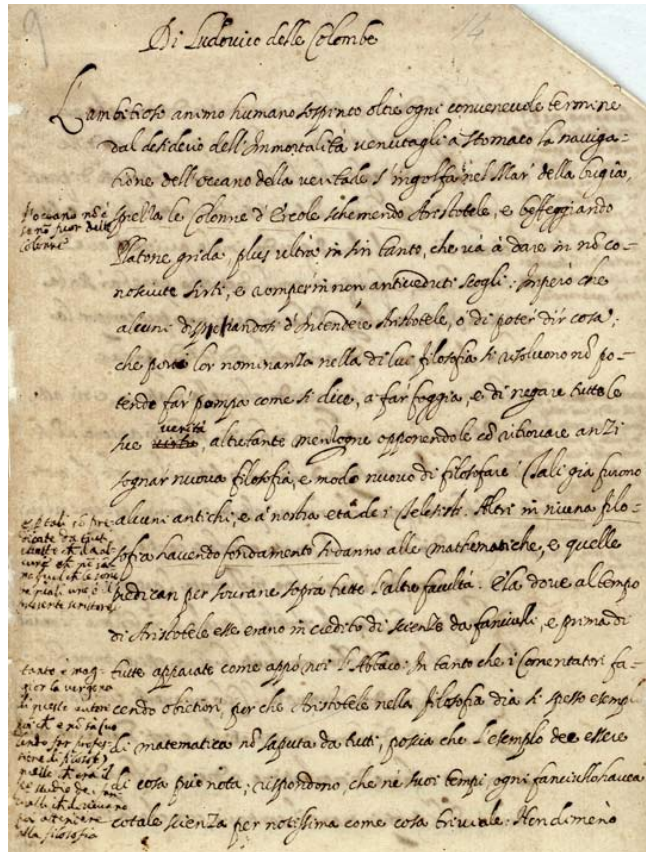 9
14
Di Ludovico delle Colombe
L'ambitioso animo humano sospinto oltre ogni convenevole termine
dal desiderio dell'Immortalità venutagli à stomaco la naviga-
tione dell'oceano della veritade s'ingolfa nel Mar' della bugia,
l'oceano nō è
se nō fuor delle
colonne
spezza le Colonne d'Ercole schernendo Aristotele, e beffeggiando
Platone grida, plus ultrà in sin tanto, che và à dare in nō co-
nosciute sirti, e romper in non antiveduti scogli: Imperò che
alcuni disperandosi d'Intendere Aristotele, o di poter dir cosa,
che porti lor nominanza nella di lui filosofia si risolvono nō po-
tendo far pompa come si dice, a far foggia, e di negare tutte le
sue verità, altretante menzogne opponendole cō ritrovare anzi
sognar nuova filosofia, e modo nuovo di filosofare: Tali già furono
alcuni antichi, e a' nostra età de i Telesisti. Altri in niuna filo-
sofia havendo fondamento si danno alle mathematiche, e quelle
predican per sovrane sopra tutte l'altre facultà. E là dove al tempo
di Aristotele esse erano in credito di scienze da fanciulli, e prima di
e p tali
tutte apparate come appò noi l'Abbaco: In tanto che i Comentatori fa-
cendo obietioni, perche Aristotele nella filosofia dia sì spesso esempli
di matematica nō saputa da tutti, poscia che l'esemplo dee essere
di cosa più nota; rispondono, che ne suoi tempi ogni fanciullo havea
cotale scienza per notissima come cosa triviale: Nondimeno
tanto è mag-
gior la vergogna
di questo autore
alla filosofia